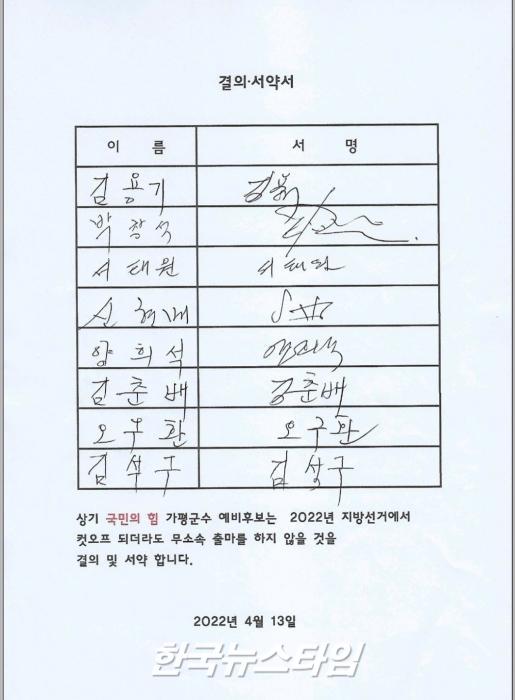 결의·서약서
이 름 서 명
김용기
박창석
서태원 서태원
신현배
양희석 양희석
김춘배 김춘배
오구환 오구환
김석구 김석구
상기 국민의 힘 가평군수 예비후보는 2022년 지방선거에서
컷오프 되더라도 무소속 출마를 하지 않을 것을
결의 및 서약 합니다.
2022년 4월 13일
한국뉴스타임